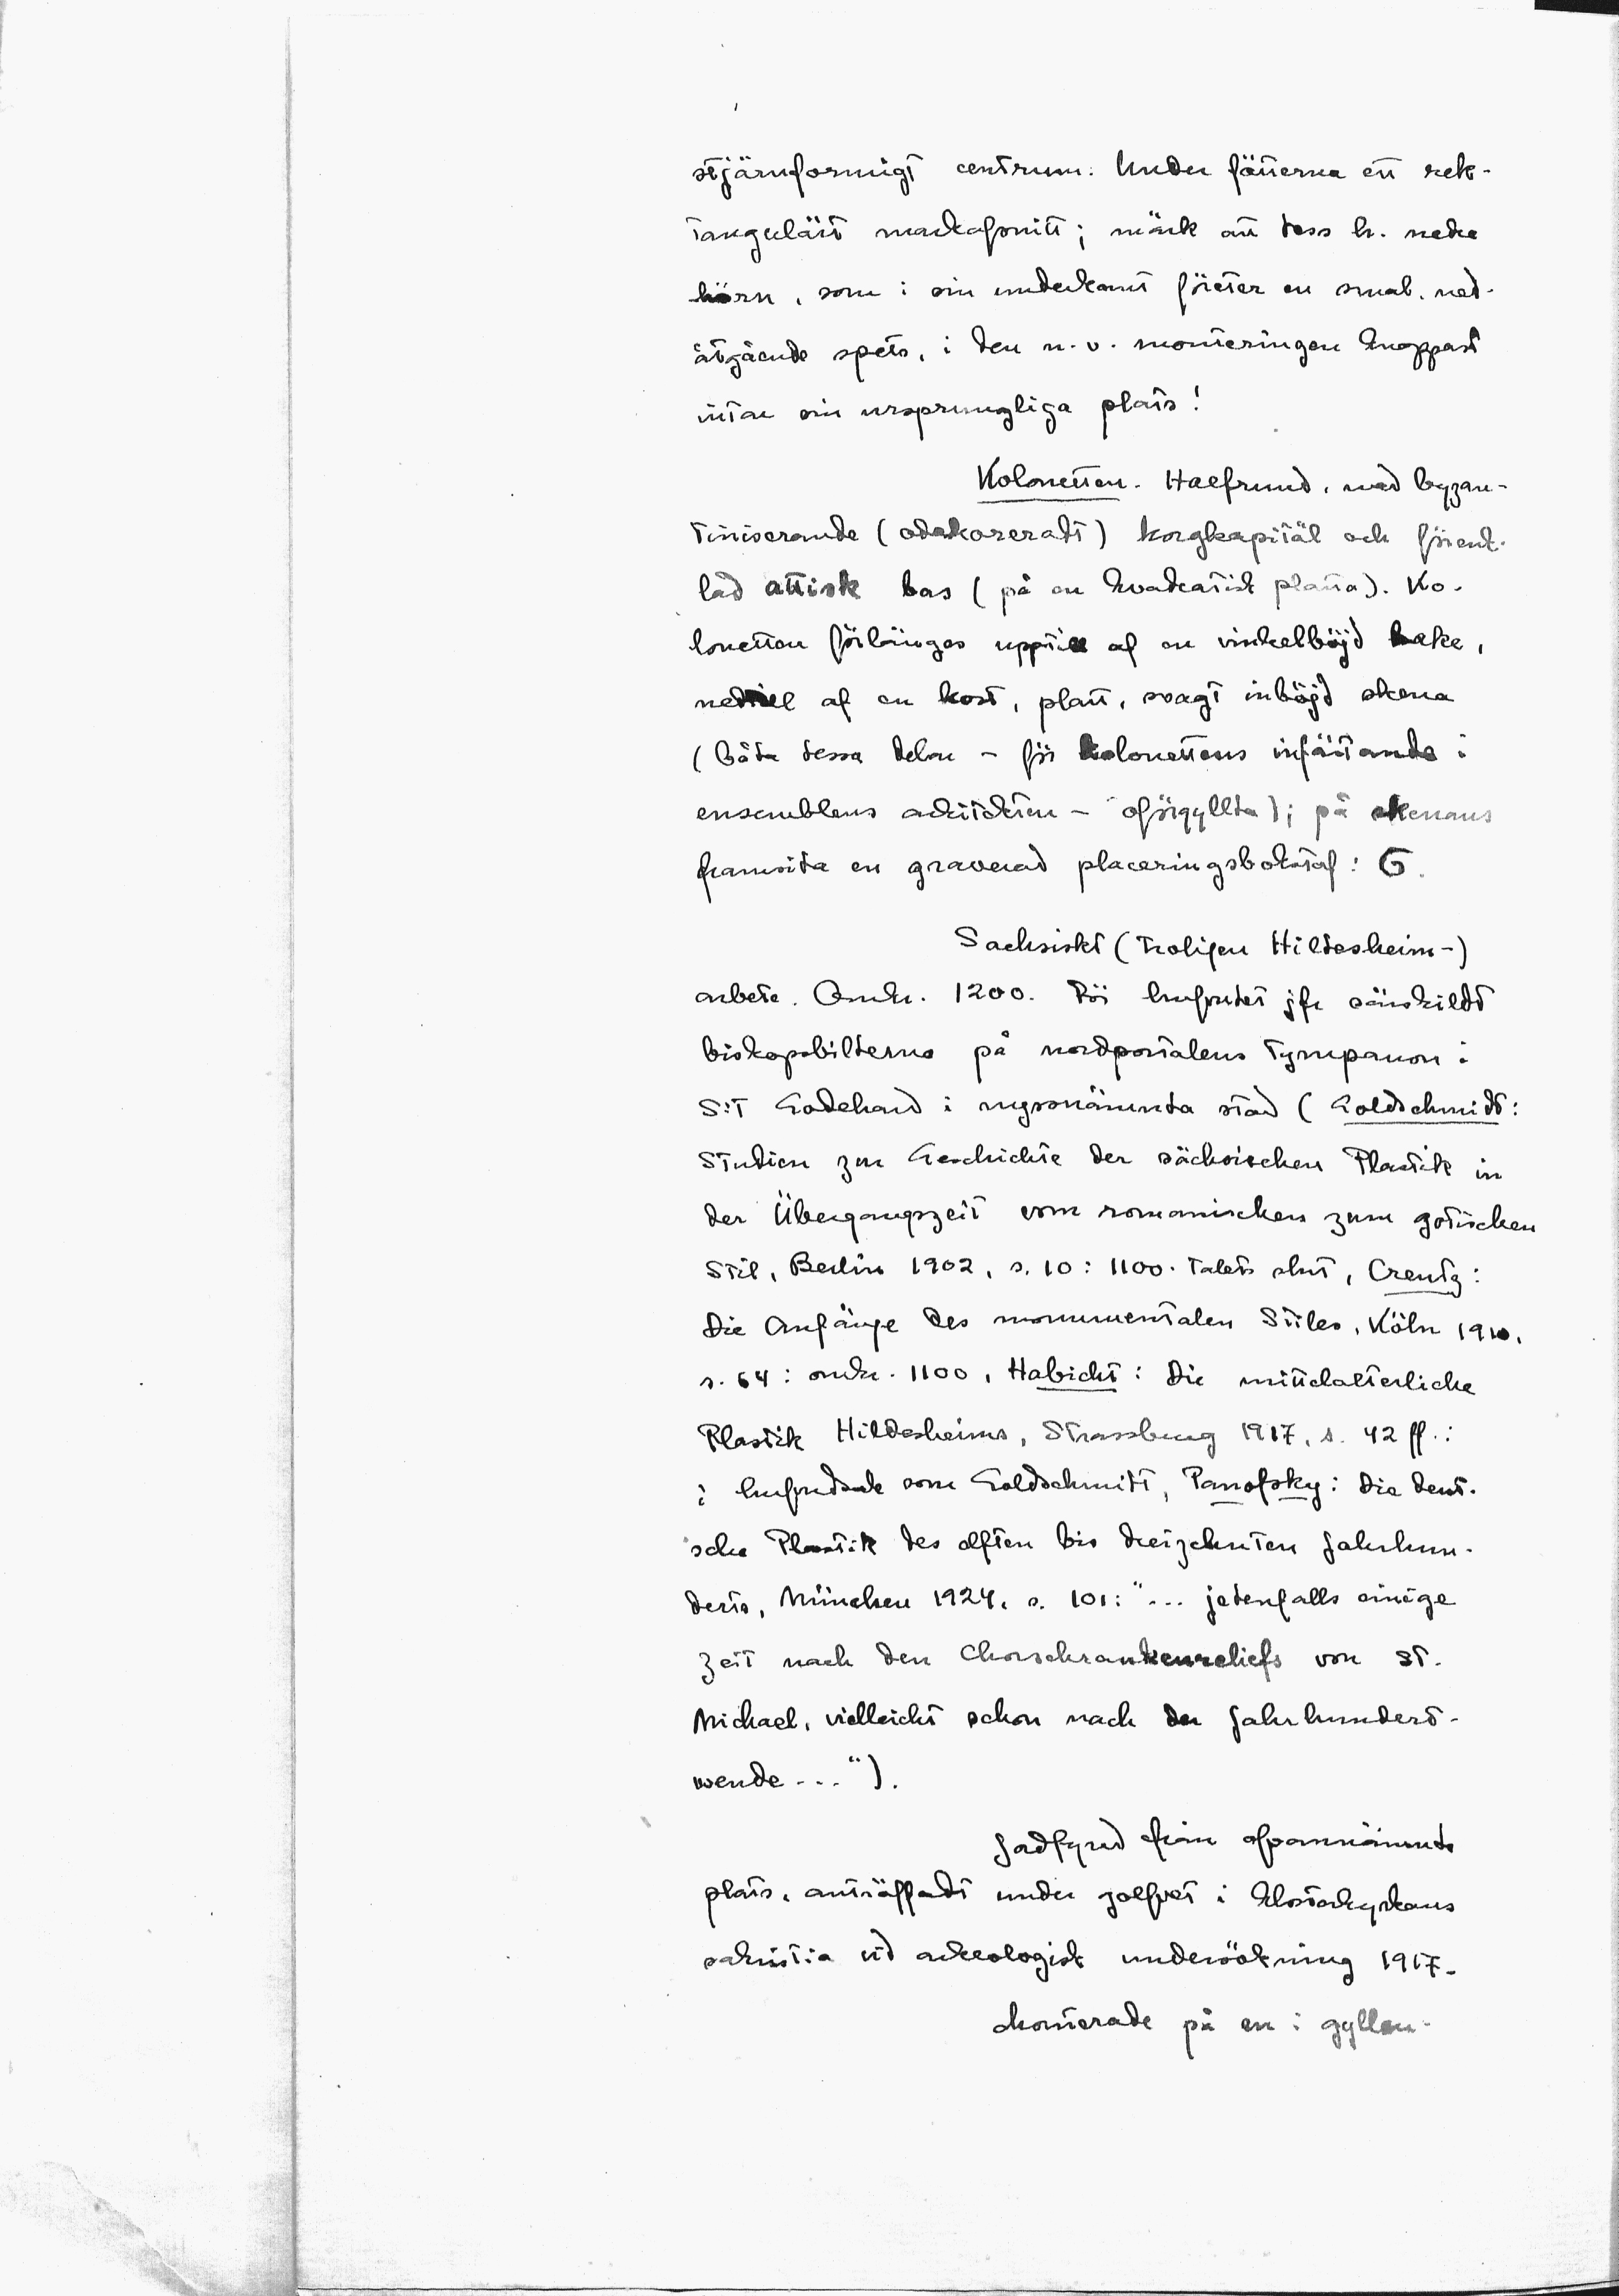 stjärnformigt centrum. Under fötterna ett rek-
tangulärt markafsnitt; märk att dess h. nedre
hörn, som i sin underkant företer en smal, ned-
åtgående spets, i den n. v. monteringen knappast
intar sin ursprungliga plats!
Kolonetten. Halfrund, med byzan-
tiniserande (odekoreradt) korgkapitäl och förenk-
lad attisk bas (på en kvadratisk platta). Ko-
lonetten förlänges upptill af en vinkelböjd hake,
nedtill af en kort, platt, svagt inböjd skena
(båda dessa delar – för kolonettens infästande i
ensemblens arkitektur – oförgyllda); på skenans
framsida en graverad placeringsbokstaf: G.
Sachsiskt (troligen Hildesheim-)
arbete. Omkr. 1200. För hufvudet jfr särskildt
biskopsbilderna på nordportalens tympanon i
S:t Godehard i nyssnämnda stad (Goldschmidt:
Studien zur Geschichte der sächsischen Plastik in
der Übergangszeit vom romanischen zum gotischen
Stil, Berlin 1902, s. 10: 1100-talets slut, Creutz:
Die Anfänge des monumentalen Stiles, Köln 1910,
s. 64: omkr. 1100, Habicht: Die mittelalterliche
Plastik Hildesheims, Strassburg 1917, s. 42 ff.:
i hufvudsak som Goldschmidt, Panofsky: Die deut-
sche Plastik des elften bis dreizehnten Jahrhun-
derts, München 1924, s. 101: "... jedenfalls einige
Zeit nach den Chorschrankenreliefs von St.
Michael, vielleicht schon nach der Jahrhundert-
wende ...").
Jordfynd från ofvannämnda
plats, anträffadt under golfvet i klosterkyrkans
sakristia vid arkeologisk undersökning 1917.
Monterade på en i gyllen-